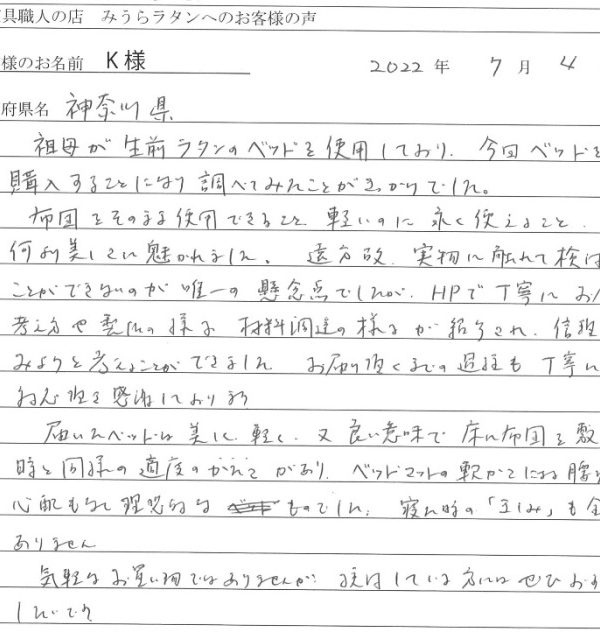 具職人の店　みうらラタンへのお客様の声
様のお名前　K様　2022年 7月 4
府県名　神奈川県
祖母が生前ラタンのベッドを使用しており、今回ベッドを
購入することになり調べてみたことがきっかけでした。
布団をそのまま使用できること、軽いのに永く使えること、
何より美しさに魅かれました。遠方故、実物に触れて検
ことができないのが唯一の懸念点でしたが、HPで丁寧に
考え方や 様子 材料調達の様子が紹介され、信頼
みようと考えることができました お届け頂くまでの過程も丁寧に
感謝しております
届いたベッドは美しく、軽く、又良い意味で床に布団を敷
時と同様の適度のかたさがあり、ベッドマットの軟かさによる腰
心配もなく理想的な ものでした。寝た時の「きしみ」も全
ありません
気軽なお買い物ではありませんが、検討している方にはぜひお
したいです